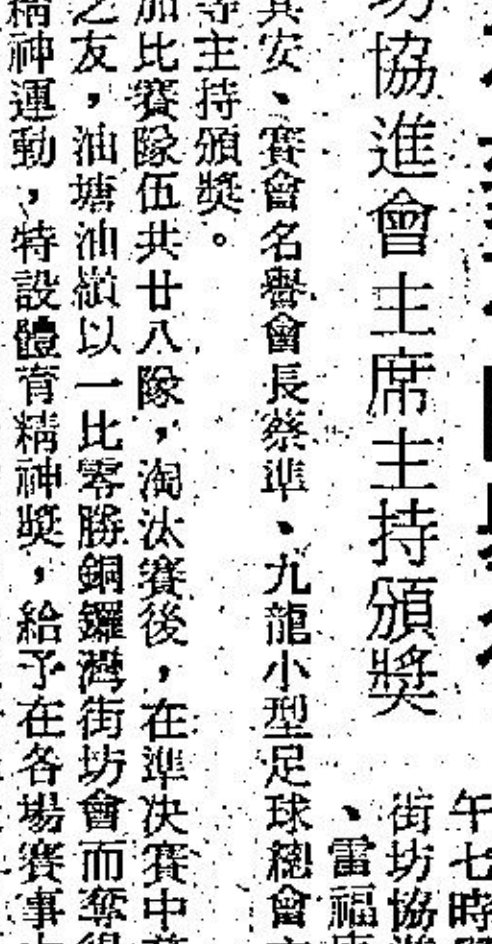 坊協進會主席主持頒獎
午七時
街坊協
、雷福
其安、賽會名譽會長蔡準、九龍小型足球總會
等主持頒獎。
加比賽隊伍共廿八隊，淘汰賽後，在準決賽中
之友，油塘油嶺以一比零勝銅鑼灣街坊會而奪得
精神運動，特設體育精神獎，給予在各場賽事